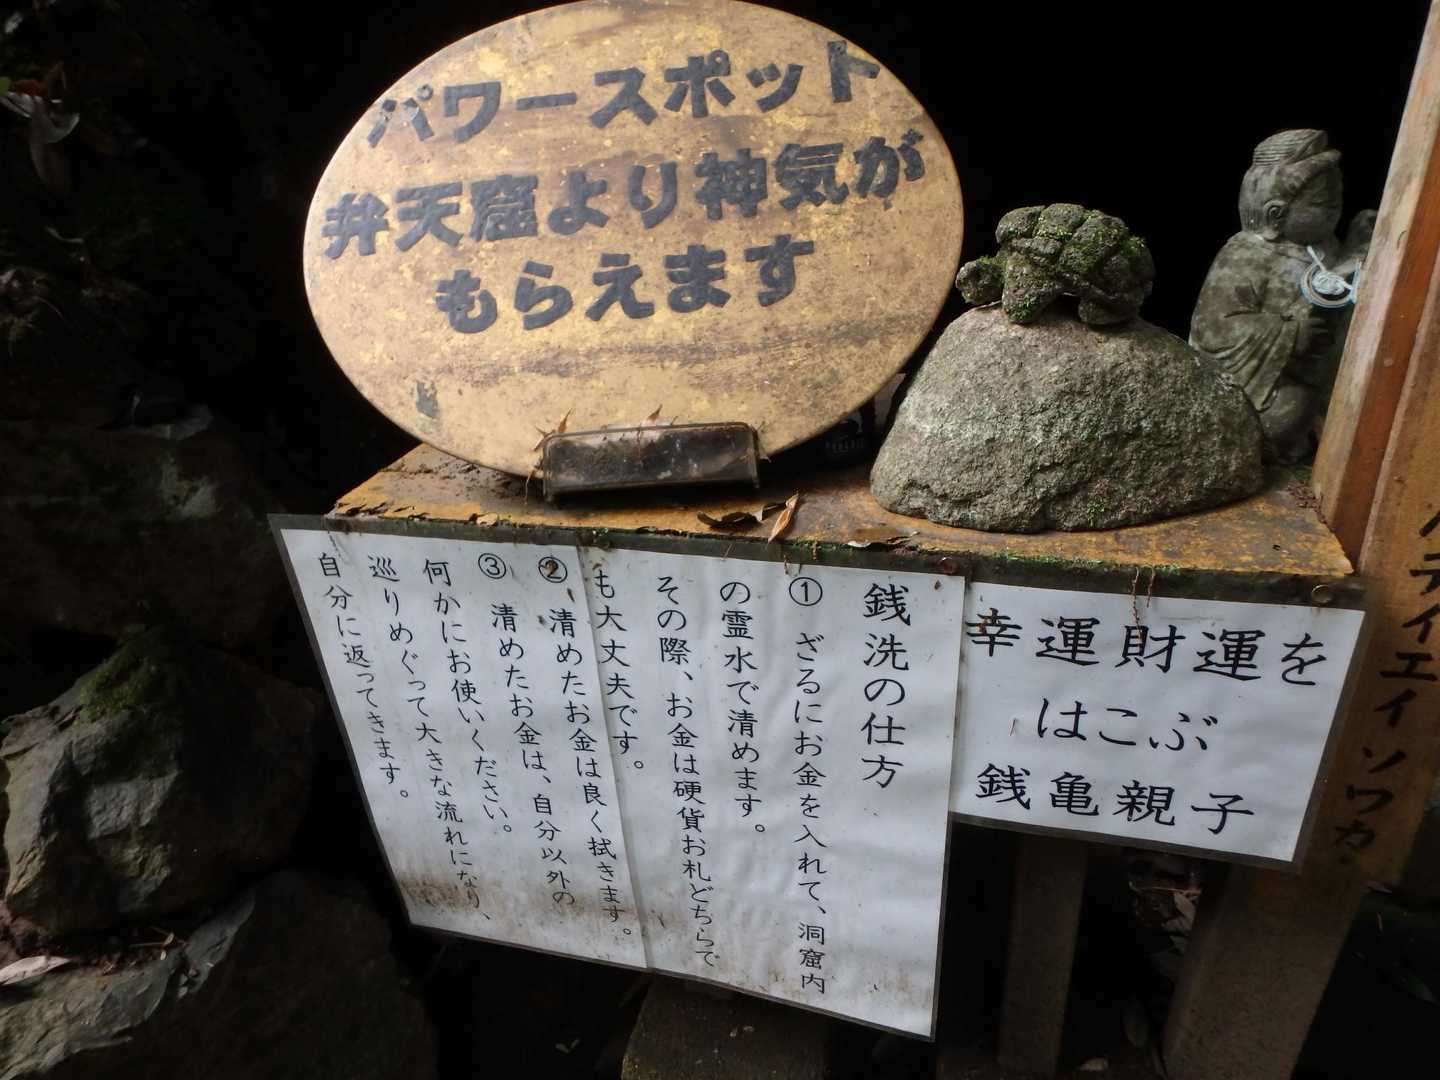 パワースポット
弁天窟より神気が
もらえます
幸運財運を
はこぶ
銭亀親子
銭洗の仕方
① ざるにお金を入れて、洞窟内
の霊水で清めます。
その際、お金は硬貨お札どちらで
も大丈夫です。
② 清めたお金は良く拭きます。
③ 清めたお金は、自分以外の
何かにお使いください。
巡りめぐって大きな流れになり、
自分に返ってきます。
ハティエイソワカ